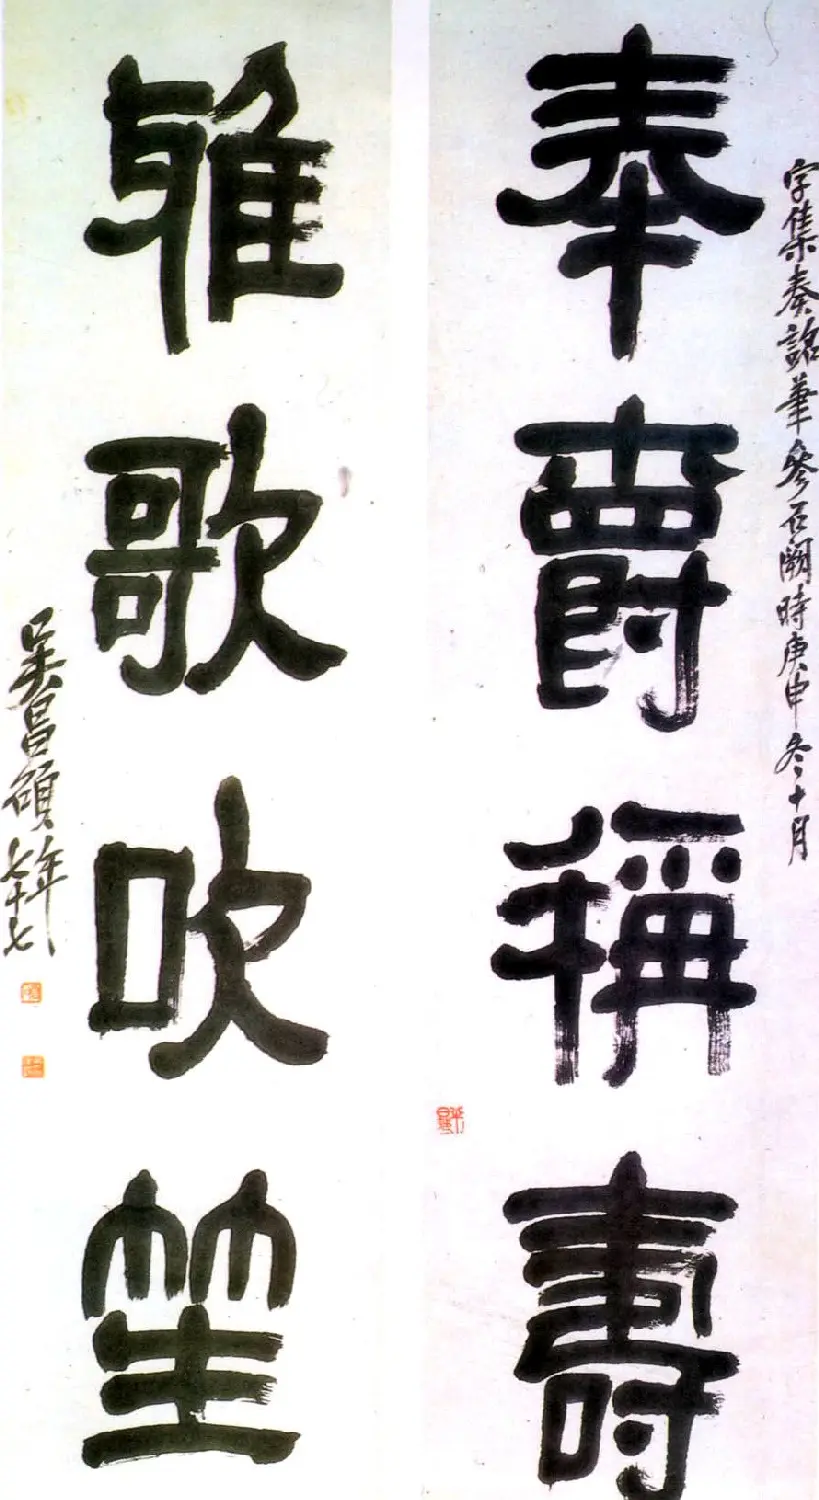 奉爵稱壽
字集秦詔筆參石闕時庚申冬十月
雅歌吹笙
吳昌碩年七十七